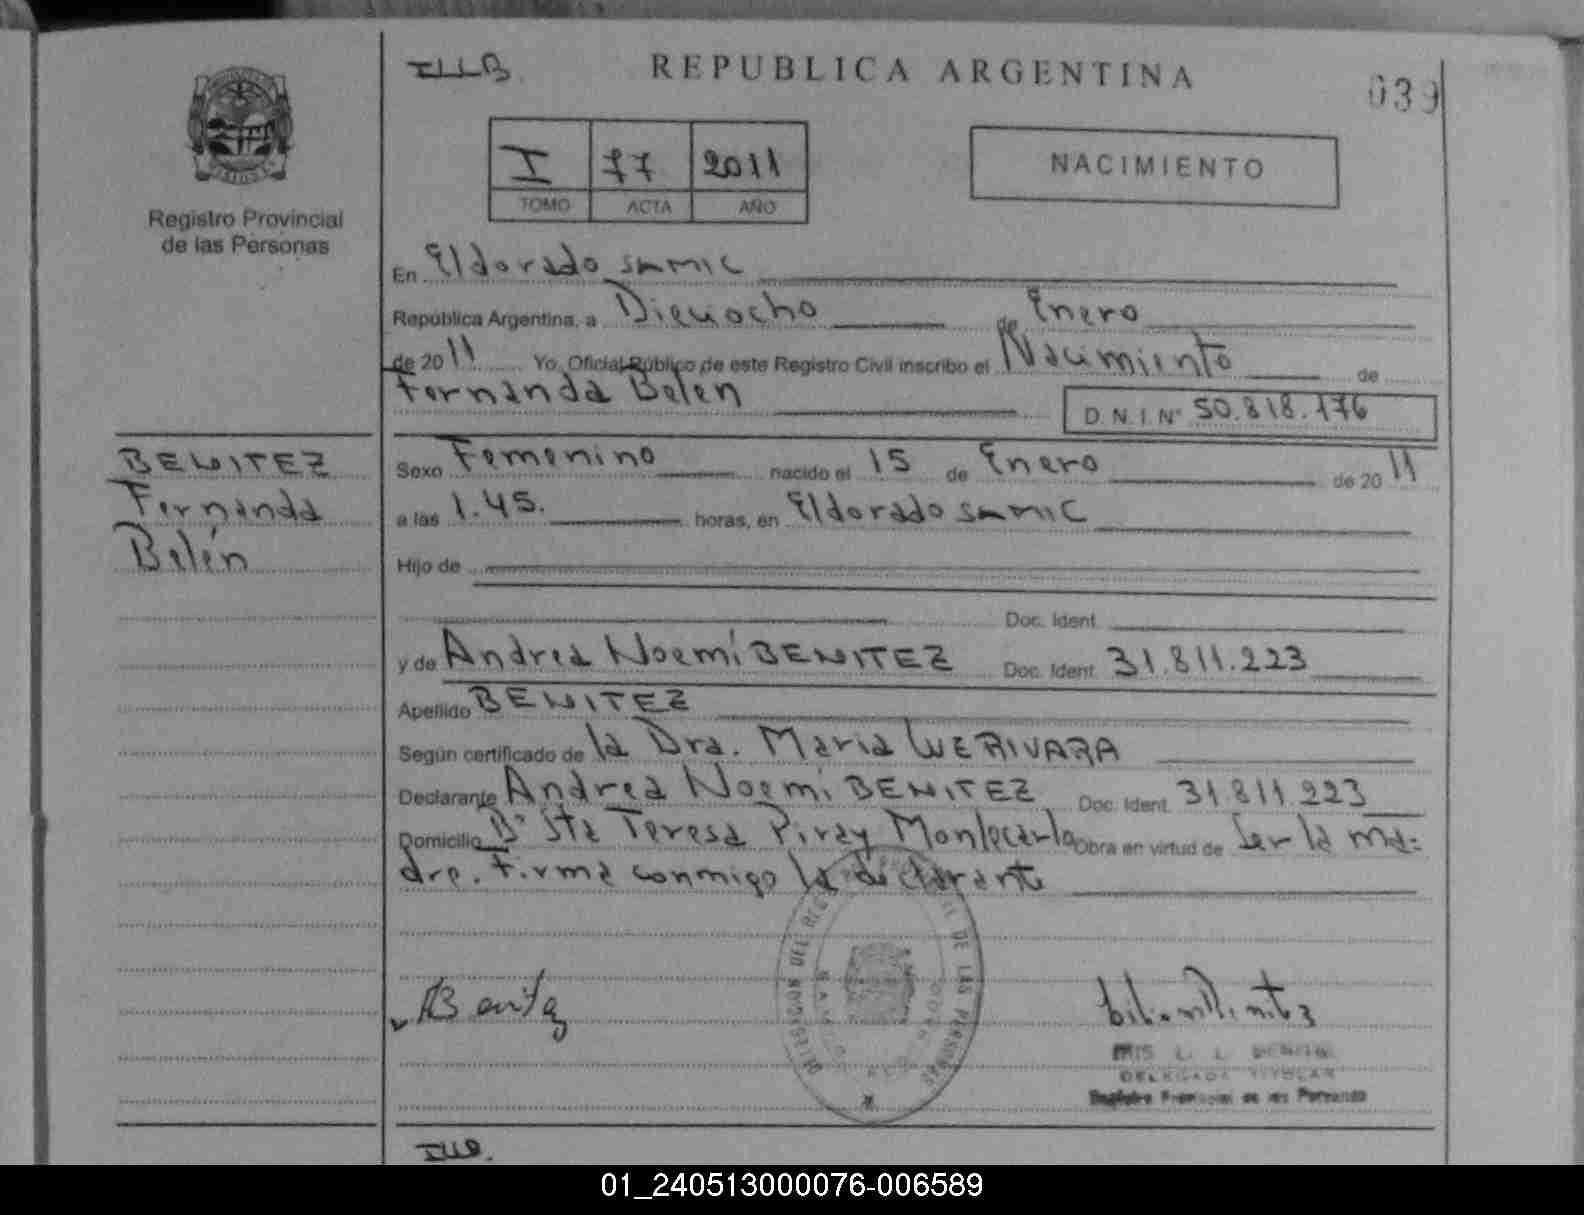 ILLB
REPUBLICA ARGENTINA
039
I 77 2011
TOMO ACTA AÑO
NACIMIENTO
Registro Provincial
de las Personas
En Eldorado SAMIC
República Argentina, a Dieciocho de Enero
de 2011 Yo, Oficial Público de este Registro Civil inscribo el Nacimiento de
Fernanda Belen
D.N.I. N° 50.818.176
BENITEZ
Fernanda
Belén
Sexo Femenino nacido el 15 de Enero de 2011
a las 1.45. horas, en Eldorado SAMIC
Hijo de
Doc. Ident.
y de Andrea Noemí BENITEZ Doc. Ident. 31.811.223
Apellido BENITEZ
Según certificado de la Dra. Maria WERIVARA
Declarante Andrea Noemi BENITEZ Doc. Ident. 31.811.223
Domicilio B° Sta Teresa Piray Montecarlo Obra en virtud de Ser la ma=
dre. Firma conmigo la declarante
DELEGACION DEL REG DE LAS PERSONAS
Benitez
DELEGADA TITULAR
Registro Provincial de las Personas
01_240513000076-006589